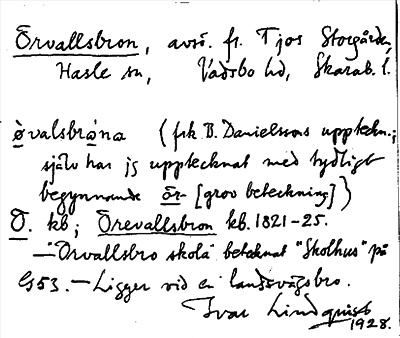 Örvallsbron, avsö. fr. Tjos Storgården,
Hasle sn, Vadsbo hd, Skarab. l.
òvalsbròna (frk B. Danielssons uppteckn.;
själv har jg upptecknat med tydligt
begynnande ör- [grov beteckning])
Ö. kb; Örevallsbron kb. 1821-25.
—"Örvallsbro skola" betecknat "Skolhus" på
G53. — Ligger vid en landsvägsbro.
Ivar Lindquist
1928.